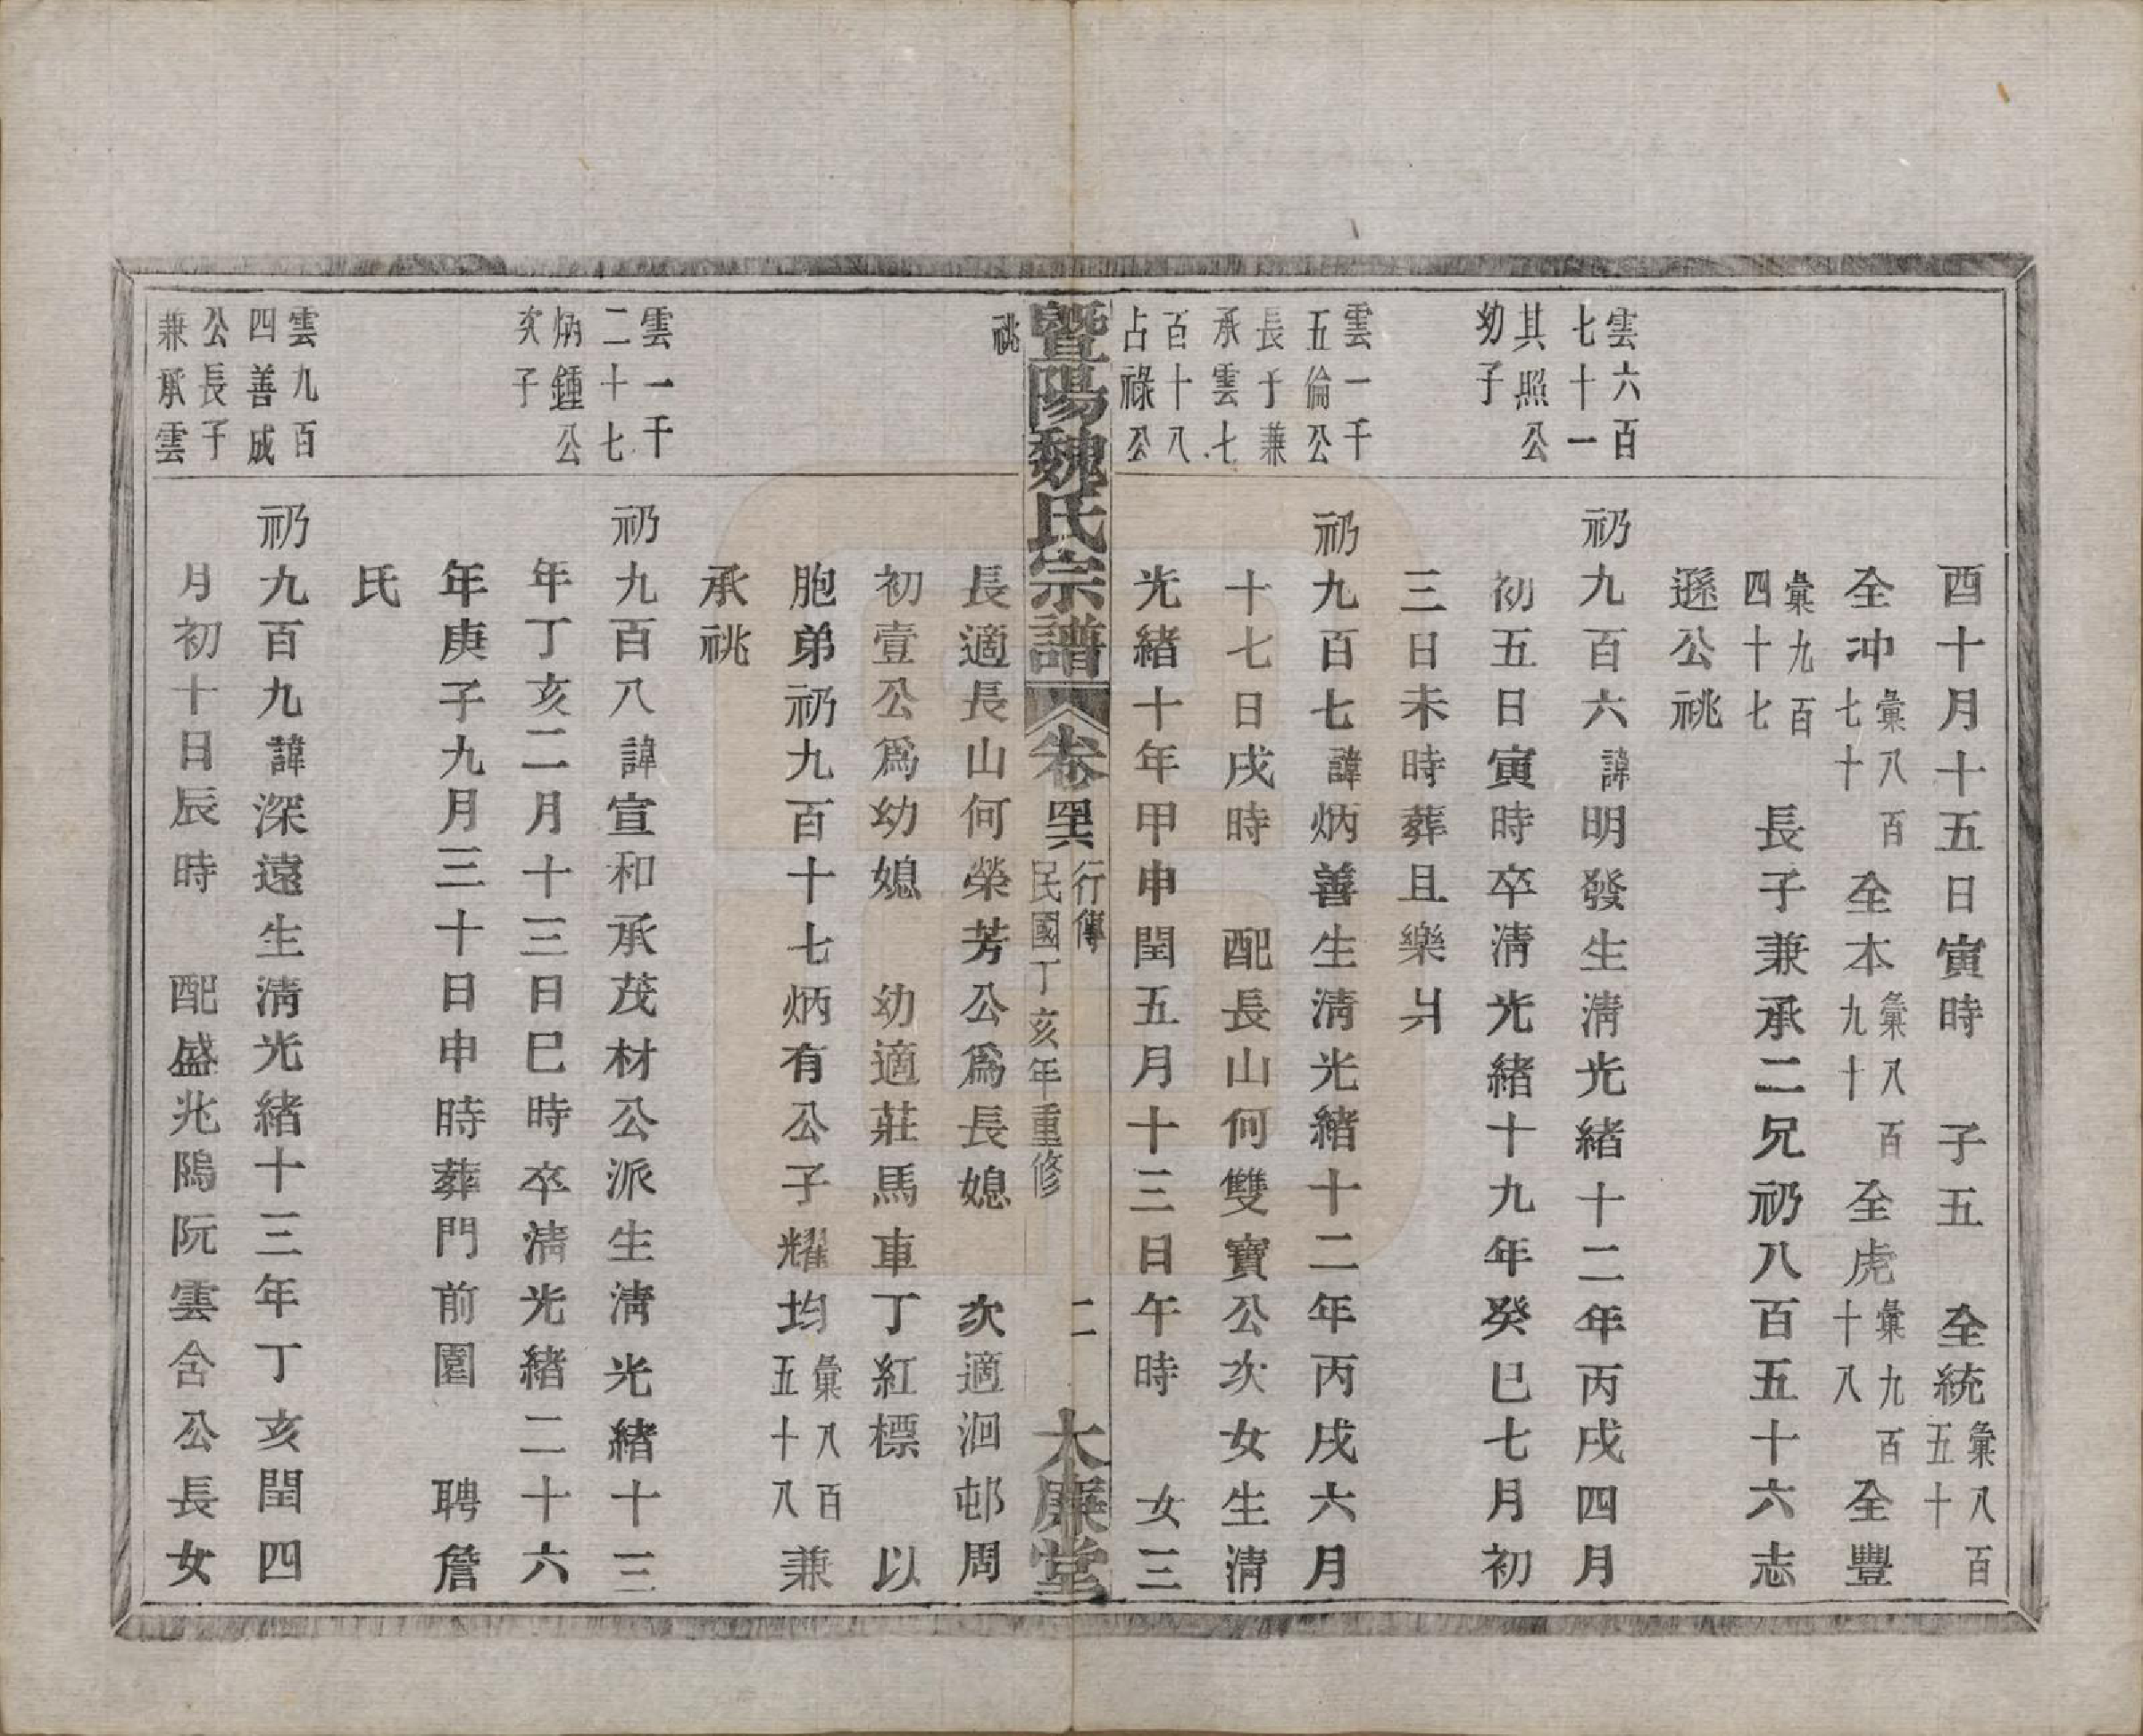 酉十月十五日寅時　子五　全統彙八百五十
全冲彙八百七十　全本彙八百九十　全虎彙九百十八　全豐
彙九百四十七　長子兼承二兄礽八百五十六志
遜公祧
雲六百七十一其照公幼子
礽九百六諱明發生清光緒十二年丙戌四月
初五日寅時卒清光緒十九年癸巳七月初
三日未時葬且樂爿
雲一千五倫公長子兼承雲七百十八占祿公祧
礽九百七諱炳善生清光緒十二年丙戌六月
十七日戌時　配長山何雙寶公次女生清
光緒十年甲申閏五月十三日午時　女三
暨陽魏氏宗譜　卷四六　行傳　民國丁亥年重修　二　大廉堂
長適長山何榮芳公爲長媳　次適泂邨周
初壹公爲幼媳　幼適莊馬車丁紅標　以
胞弟礽九百十七炳有公子耀均彙八百五十八兼
承祧
雲一千二十七炳鍾公次子
礽九百八諱宣和承茂材公派生清光緒十三
年丁亥二月十三日巳時卒清光緒二十六
年庚子九月三十日申時葬門前園　聘詹
氏
雲九百四善成公長子兼承雲
礽九百九諱深遠生清光緒十三年丁亥閏四
月初十日辰時　配盛兆隝阮雲含公長女